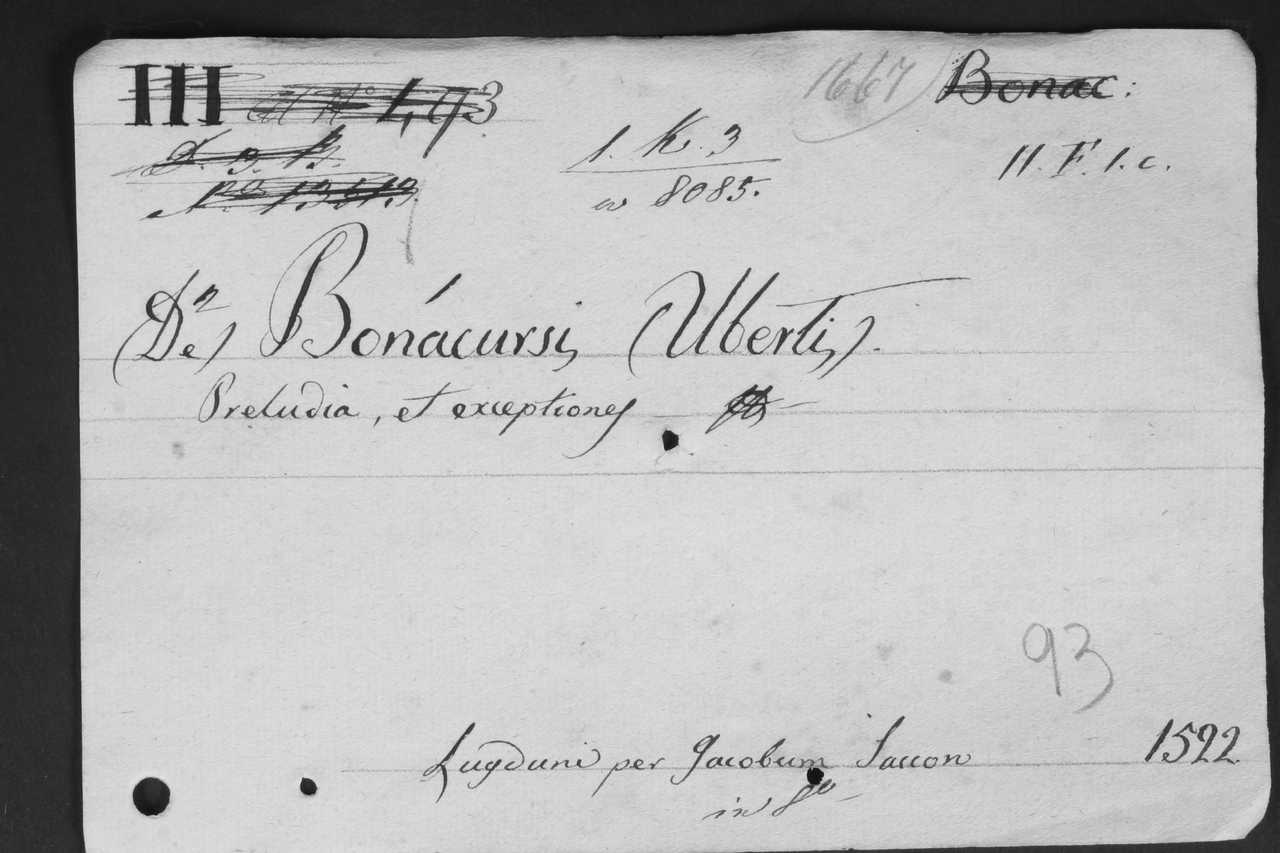 III 493 1667 Bonac:
D. 3. B. 1. K. 3 II. F. 1. c.
Nº 13613. w 8085.
(De) Bonácursi, (Uberti,).
Preludia, et exceptiones
93
Lugduni per Jacobum Saccon 1522
in 8º